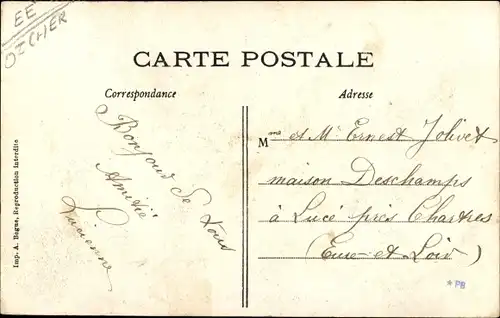 EE
OICHER
CARTE POSTALE
Correspondance
Adresse
Bonjour de tous
Amitié
Lucienne
Mme et Mr Ernest Jolivet
maison Deschamps
à Lucé près Chartres
(Eure-et-Loir)
Imp. A. Bogue, Reproduction interdite
*PB